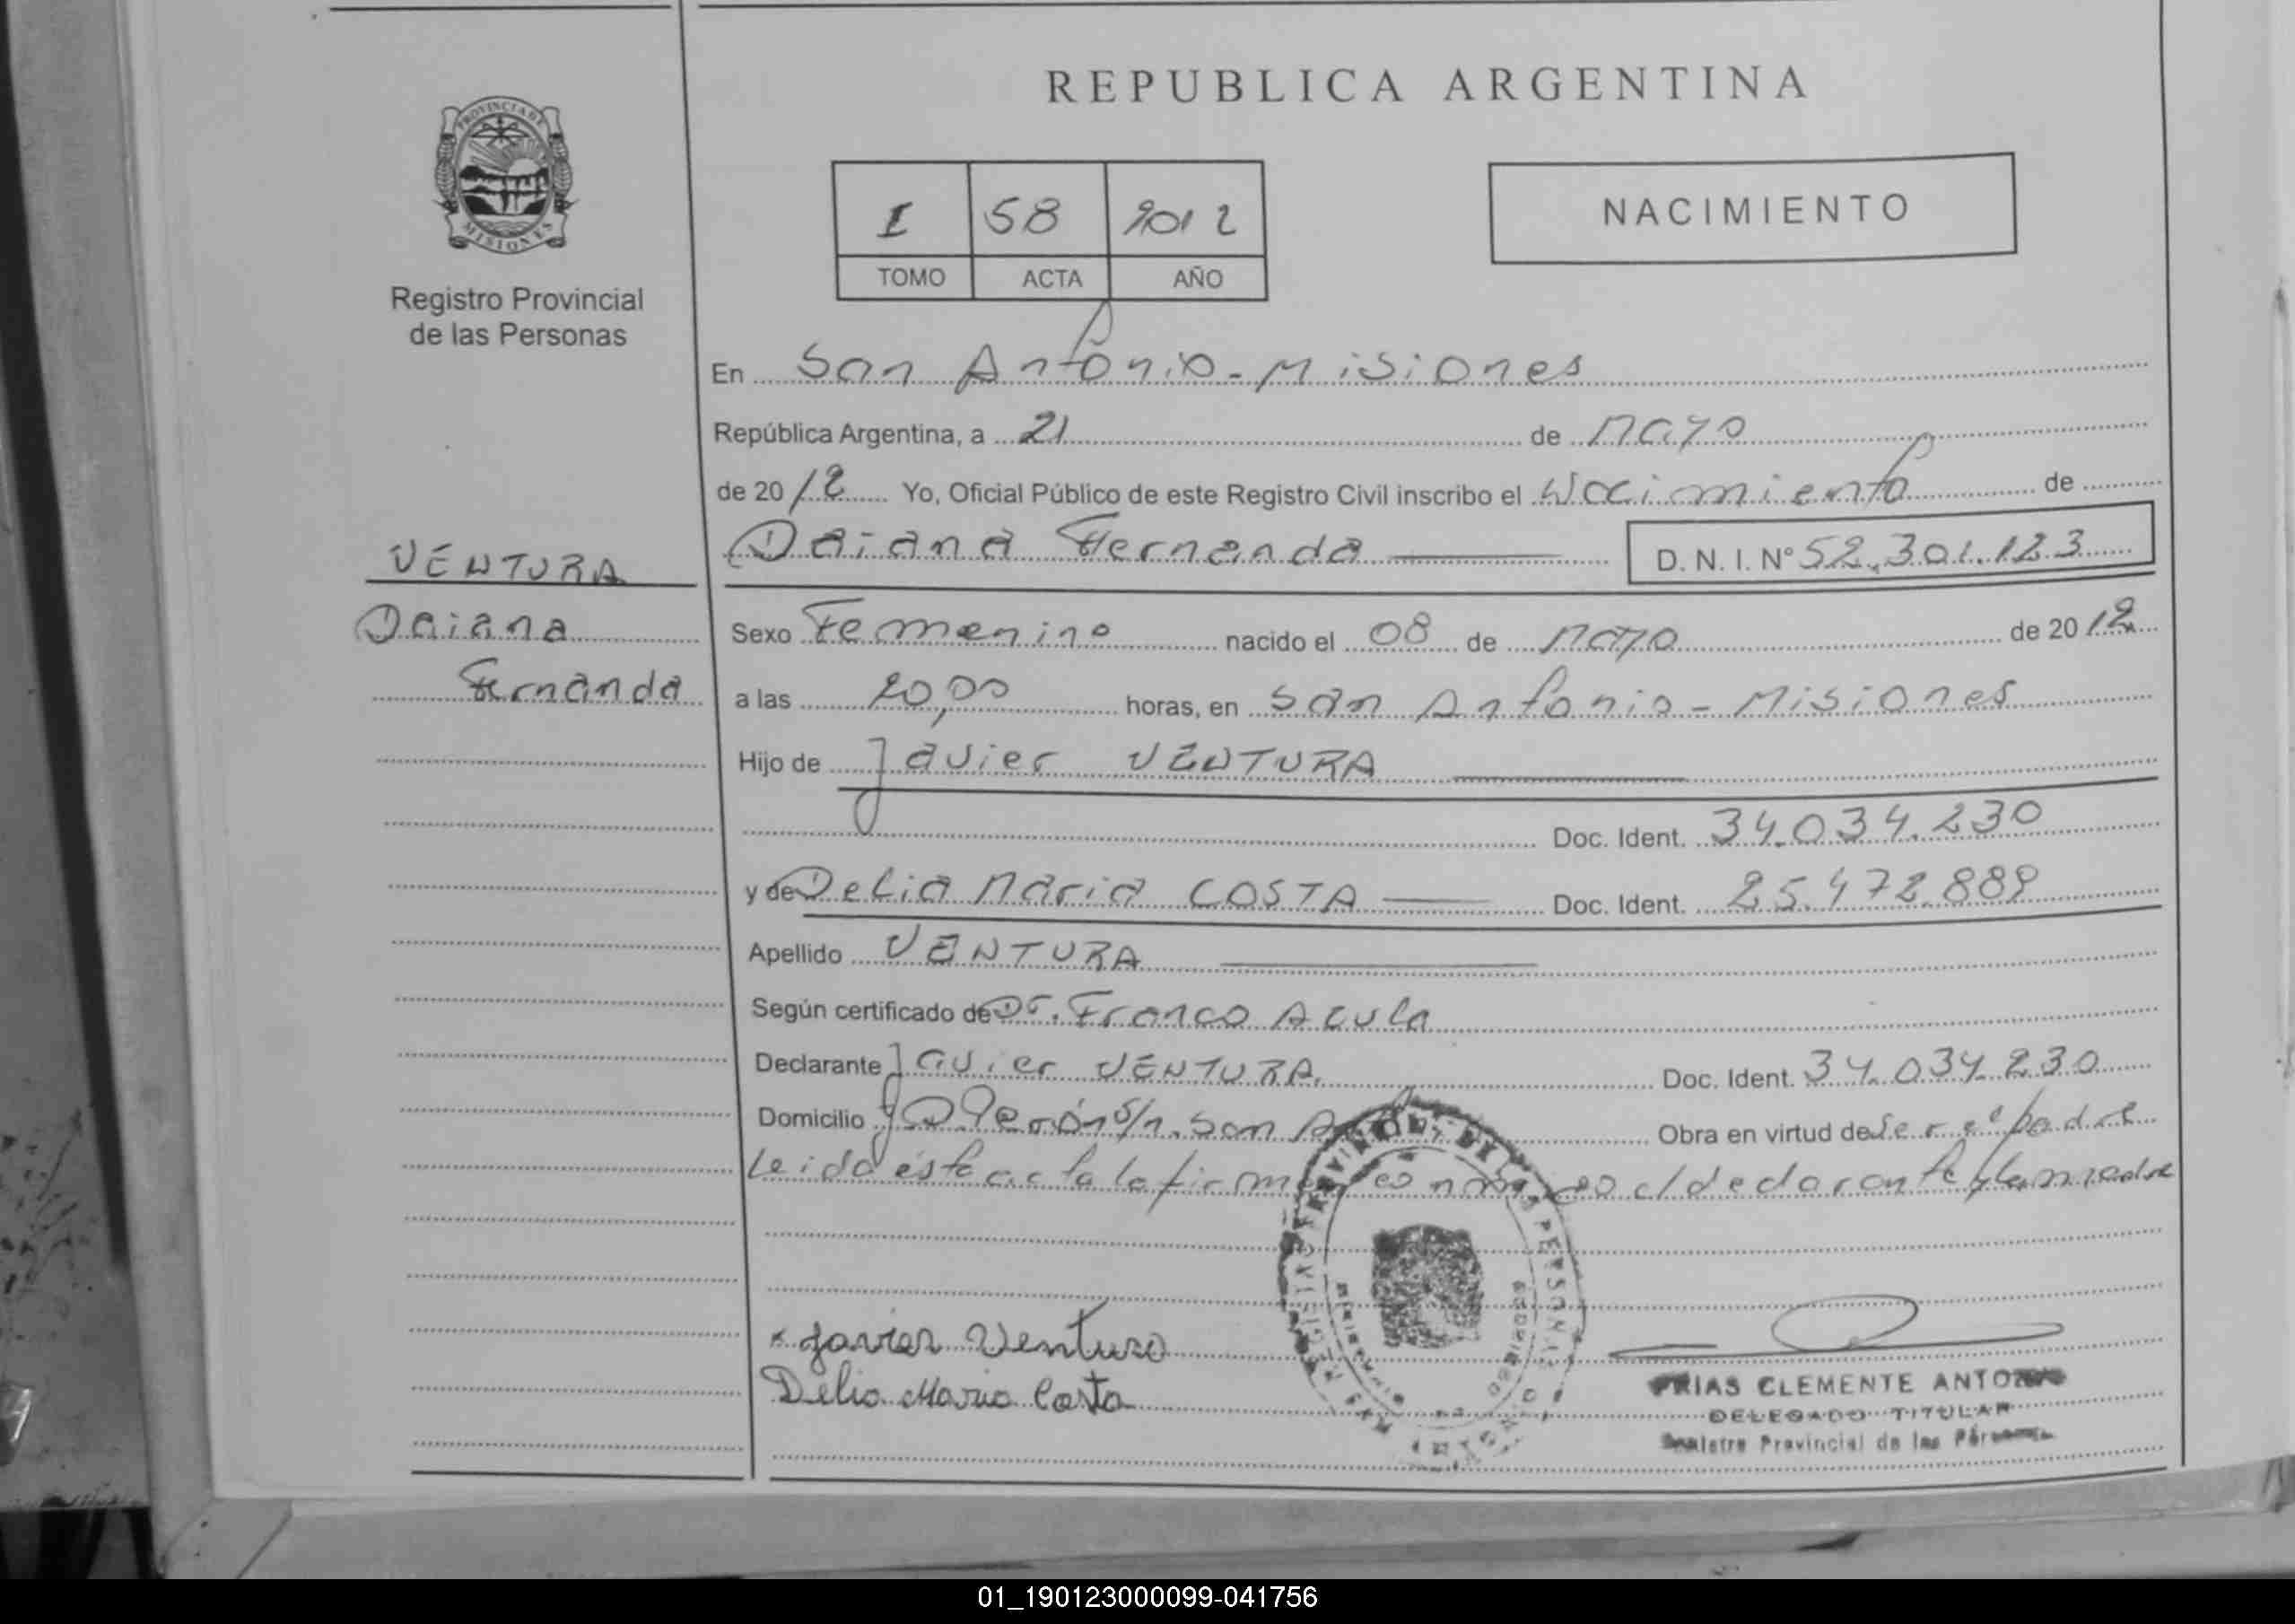 REPUBLICA ARGENTINA
PROVINCIA DE
MISIONES
Registro Provincial
de las Personas
I 58 2012
TOMO ACTA AÑO
NACIMIENTO
En San Antonio - Misiones
República Argentina, a 21 de Mayo
de 2012 Yo, Oficial Público de este Registro Civil inscribo el Nacimiento de
VENTURA
Daiana Fernanda
D. N. I. Nº 52.301.123
Daiana
Fernanda
Sexo Femenino nacido el 08 de Mayo de 2012
a las 20,00 horas, en San Antonio - Misiones
Hijo de Javier VENTURA
Doc. Ident. 34.034.230
y de Delia Maria COSTA Doc. Ident. 25.472.889
Apellido VENTURA
Según certificado de Dr. Franco Acula
Declarante Javier VENTURA. Doc. Ident. 34.034.230
Domicilio J D Perón S/n. San Obra en virtud de ser el padre
Leida ésta acta la firman conmigo el declarante y la madre
x Javier Ventura
Delia Maria Costa
FRIAS CLEMENTE ANTONIO
DELEGADO TITULAR
Registro Provincial de las Personas
01_190123000099-041756